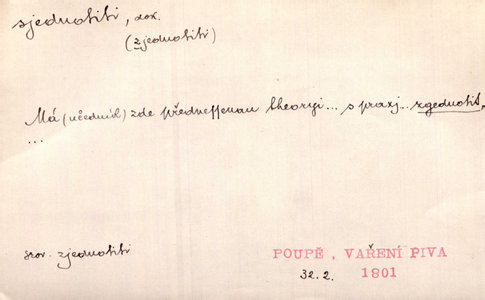 sjednotiti, dok.
(zjednotiti)
Má (učedník) zde předneſſenau theoryi... s praxj... zgednotit,
...
srov. zjednotiti
POUPĚ, VAŘENÍ PIVA
32.2. 1801